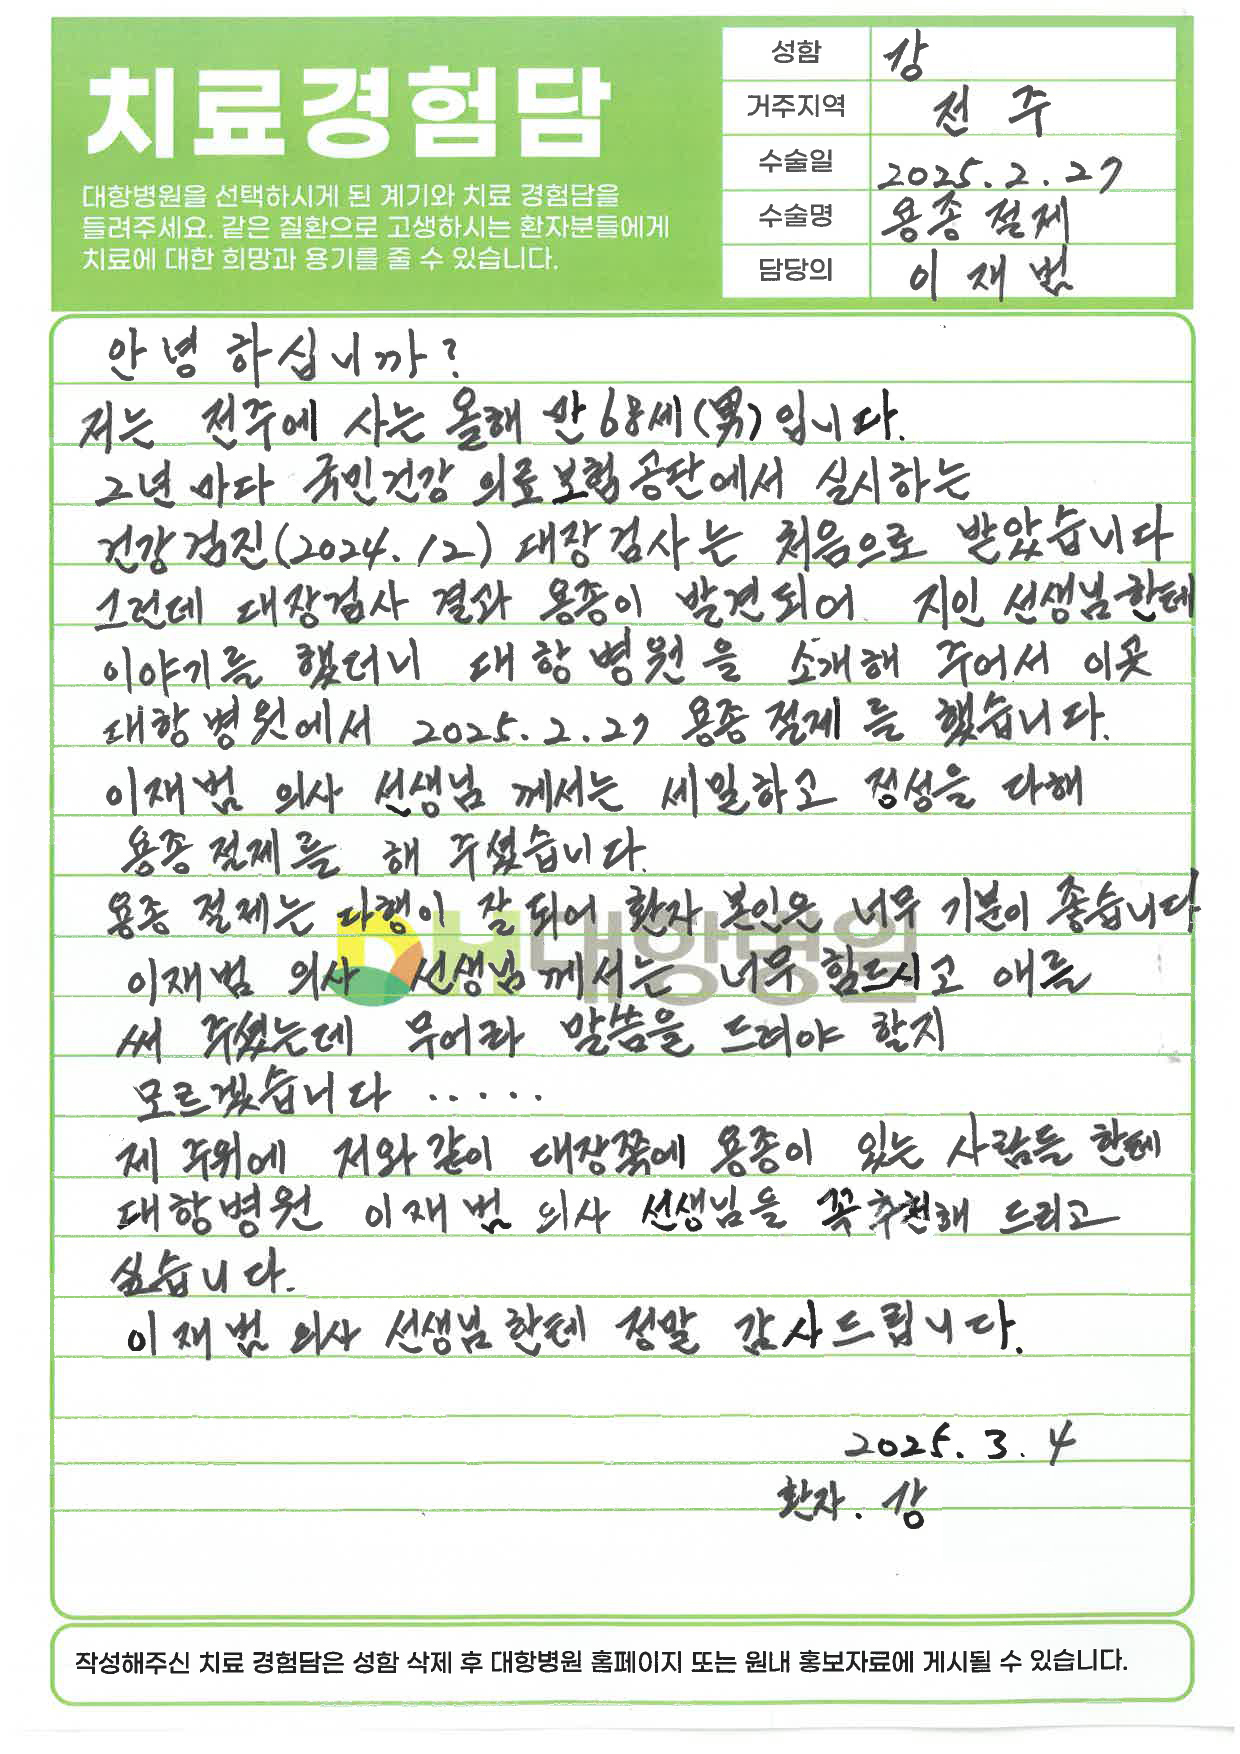 치료경험담
대항병원을 선택하시게 된 계기와 치료 경험담을
들려주세요. 같은 질환으로 고생하시는 환자분들에게
치료에 대한 희망과 용기를 줄 수 있습니다.
성함 강
거주지역 전주
수술일 2025.2.27
수술명 용종 절제
담당의 이재범
안녕하십니까?
저는 전주에 사는 올해 만 68세(男)입니다.
2년 마다 국민건강 의료보험공단에서 실시하는
건강검진(2024.12) 대장검사는 처음으로 받았습니다
그런데 대장검사 결과 용종이 발견되어 지인 선생님한테
이야기를 했더니 대항병원을 소개해 주어서 이곳
대항병원에서 2025.2.27 용종절제를 했습니다.
이재범 의사 선생님께서는 세밀하고 정성을 다해
용종 절제를 해 주셨습니다.
용종 절제는 다행이 잘 되어 환자 본인은 너무 기분이 좋습니다
이재범 의사 선생님께서는 너무 힘드시고 애를
써 주셨는데 무어라 말씀을 드려야 할지
모르겠습니다 .....
제 주위에 저와 같이 대장쪽에 용종이 있는 사람들 한테
대항병원 이재범 의사 선생님을 꼭 추천해 드리고
싶습니다.
이재범 의사 선생님한테 정말 감사드립니다.
2025.3.4
환자. 강
DH대항병원
작성해주신 치료 경험담은 성함 삭제 후 대항병원 홈페이지 또는 원내 홍보자료에 게시될 수 있습니다.